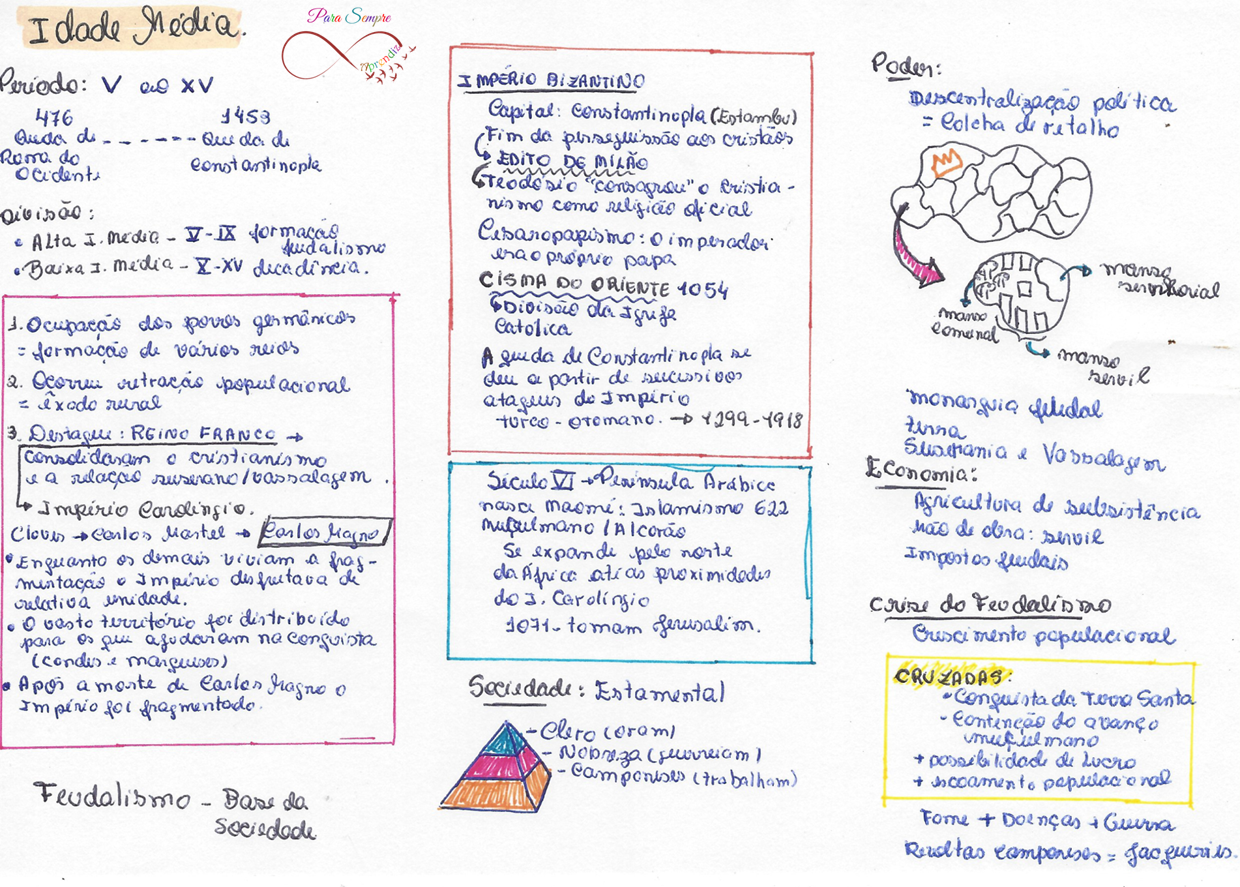 Idade Média.
Para Sempre
Aprendiz
Período: V ao XV
476 1453
Queda de - - - - - - - Queda de
Roma do Constantinopla
Ocidente
Divisão:
• Alta I. Média - V-IX formação
feudalismo
• Baixa I. Média - X-XV decadência.
1. Ocupação dos povos germânicos
= formação de vários reios
2. Ocorreu retração populacional
= êxodo rural
3. Destaque: REINO FRANCO →
Consolidaram o cristianismo
e a relação suserano/vassalagem.
→ Império Carolíngio.
Clovis → Carlos Martel → Carlos Magno
• Enquanto os demais viviam a frag-
mentação o Império disfrutava de
relativa unidade.
• O vasto território foi distribuído
para os que ajudaram na conquista
(condes e marqueses)
• Após a morte de Carlos Magno o
Império foi fragmentado.
Feudalismo - Base da
Sociedade
IMPÉRIO BIZANTINO
Capital: Constantinopla (Estambu)
Fim da perseguissão aos cristãos
→ EDITO DE MILÃO
Teodósio "consagrou" o cristia-
nismo como religião oficial
Cesaropapismo: o imperador
era o próprio papa
CISMA DO ORIENTE 1054
→ Divisão da Igreja
Católica
A queda de Constantinopla se
deu a partir de sucessivos
ataques do Império
turco-otomano. → 1299-1918
Século VI → Península Arábica
nasce Maomé: Islamismo 622
muçulmano / Alcorão
Se expande pelo norte
da África até as proximidades
do I. Carolíngio
1071 - tomam Jerusalém.
Sociedade: Estamental
- Clero (oram)
- Nobreza (guerreiam)
- Camponeses (trabalham)
Poder:
Descentralização política
= Colcha de retalho
manso
senhorial
manso
comunal
manso
servil
monarquia feudal
terra
Suserania e Vassalagem
Economia:
Agricultura de subsistência
mão de obra: servil
Impostos feudais
Crise do Feudalismo
Crescimento populacional
CRUZADAS:
- Conquista da Terra Santa
- Contenção do avanço
muçulmano
+ possibilidade de lucro
+ escoamento populacional
Fome + Doenças + Guerra
Revoltas camponesas = Jacqueries.